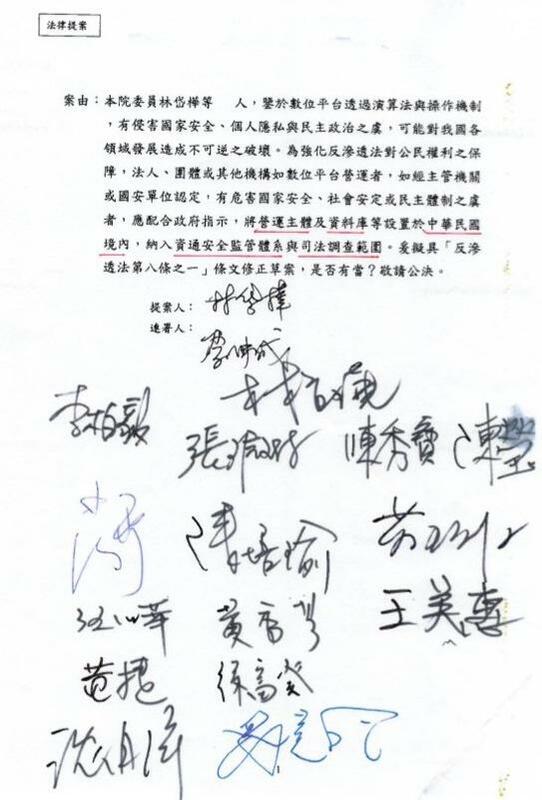 法律提案
案由：本院委員林岱樺等　人，鑒於數位平台透過演算法與操作機制
，有侵害國家安全、個人隱私與民主政治之虞，可能對我國各
領域發展造成不可逆之破壞。為強化反滲透法對公民權利之保
障，法人、團體或其他機構如數位平台營運者，如經主管機關
或國安單位認定，有危害國家安全、社會安定或民主體制之虞
者，應配合政府指示，將營運主體及資料庫等設置於中華民國
境內，納入資通安全監管體系與司法調查範圍。爰擬具「反滲
透法第八條之一」條文修正草案，是否有當？敬請公決。
提案人：林岱樺
連署人：
李柏毅
陳秀寳
陳培瑜
王美惠
黃捷
徐富癸